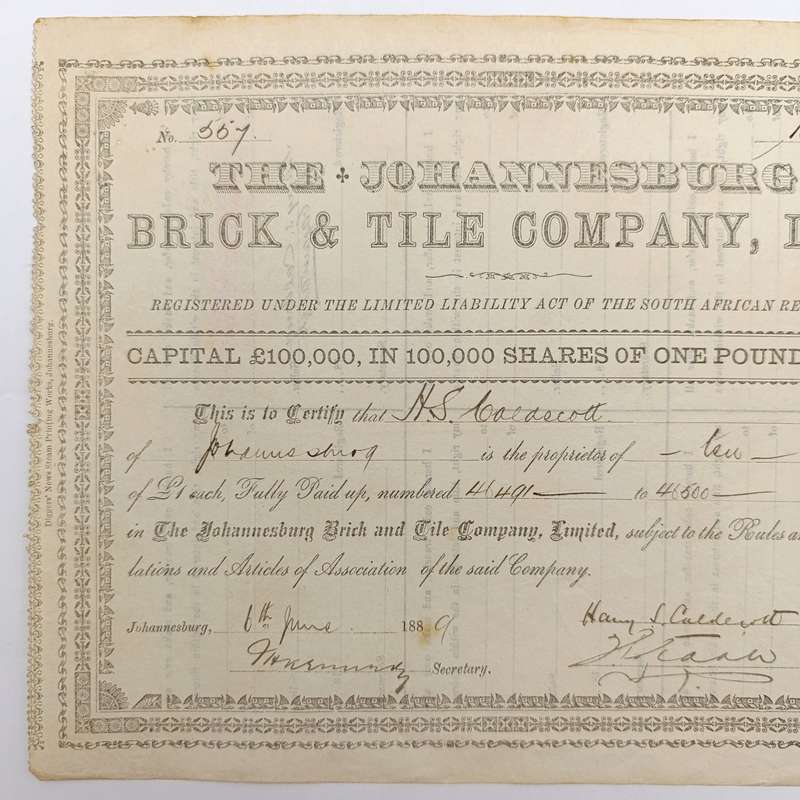 No. 557.
THE JOHANNESBURG
BRICK & TILE COMPANY, L
REGISTERED UNDER THE LIMITED LIABILITY ACT OF THE SOUTH AFRICAN RE
CAPITAL £100,000, IN 100,000 SHARES OF ONE POUND
This is to Certify that H.S. Caldecott
of Johannesburg is the proprietor of — ten —
of £1 each, Fully Paid up, numbered 46491 — to 46500 —
in The Johannesburg Brick and Tile Company, Limited, subject to the Rules an
lations and Articles of Association of the said Company.
Johannesburg, 6th June 1889
Harry S. Caldecott
Secretary.
Diggers' News Steam Printing Works, Johannesburg.